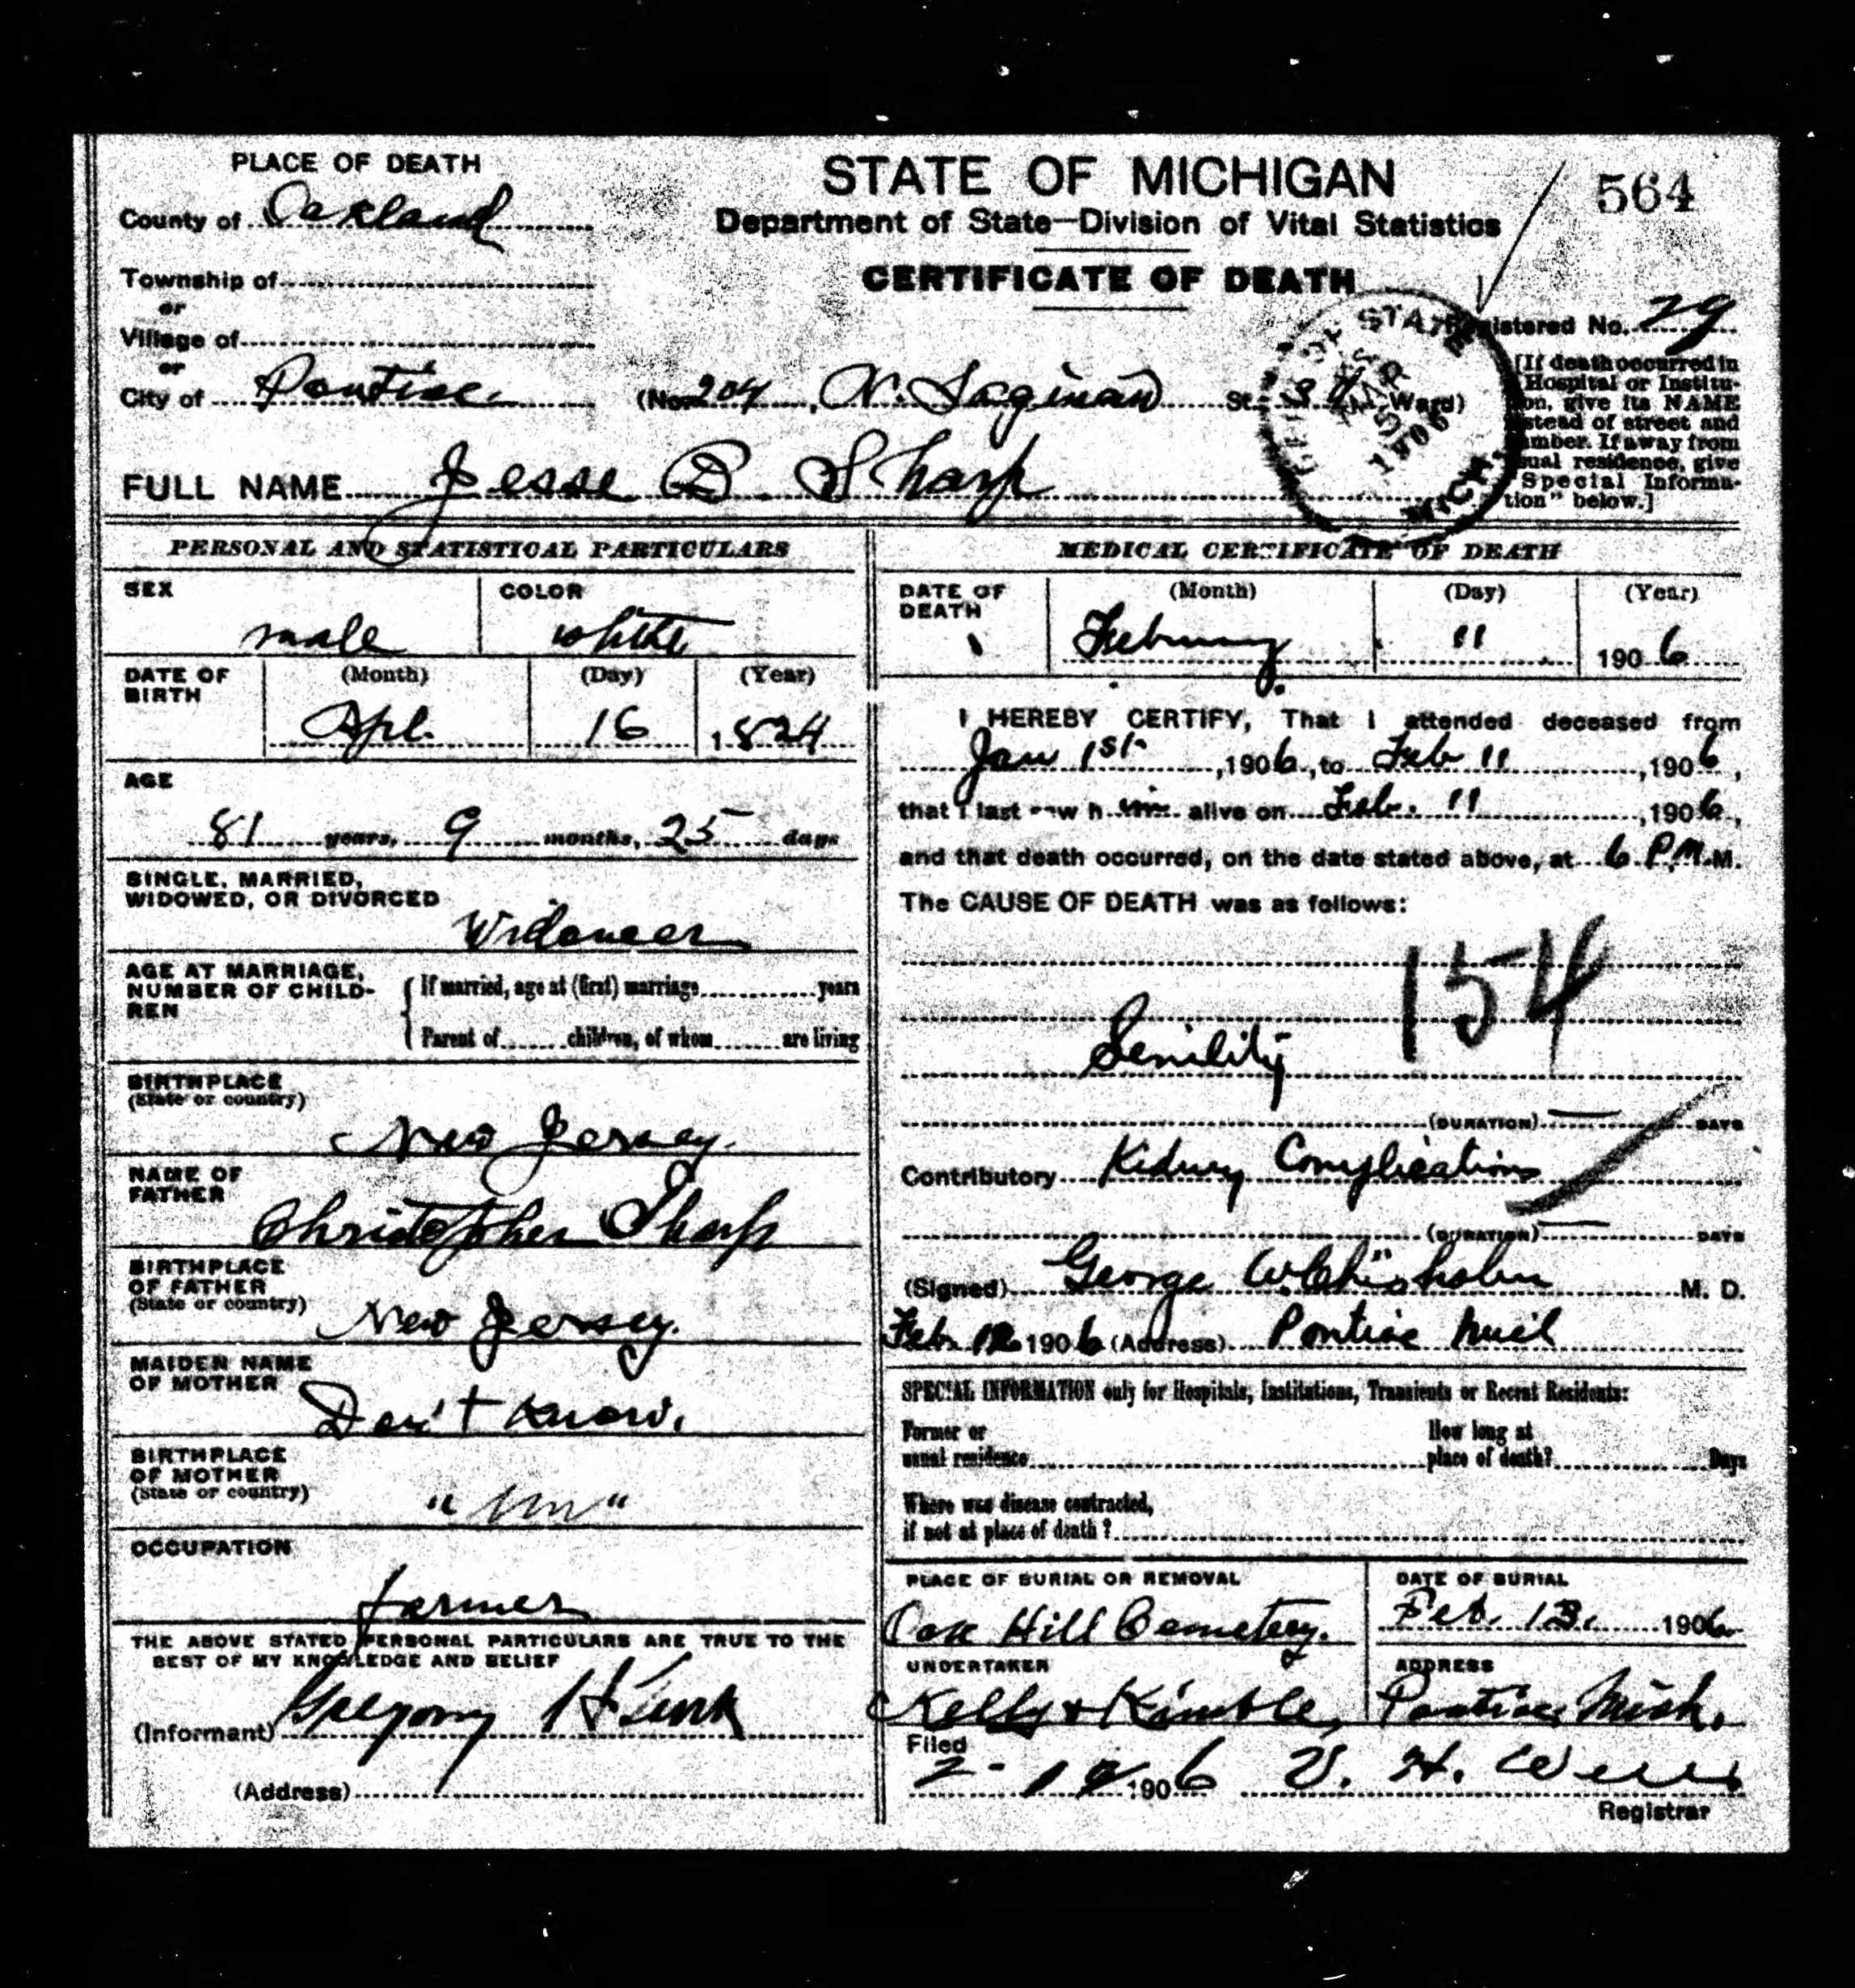 PLACE OF DEATH
County of Oakland
Township of
or
Village of
or
City of Pontiac
STATE OF MICHIGAN
Department of State—Division of Vital Statistics
CERTIFICATE OF DEATH
564
Registered No. 29
(No. 204, N. Saginaw St. Ward)
[If death occurred in
Hospital or Institu-
on, give its NAME
stead of street and
mber. If away from
sual residence, give
Special Informa-
tion" below.]
STATE
MAR
1906
MICH.
FULL NAME Jesse B. Sharp
PERSONAL AND STATISTICAL PARTICULARS
SEX
male
COLOR
white
DATE OF
BIRTH
(Month) (Day) (Year)
Apl. 16 1824
AGE
81 years, 9 months, 25 days
SINGLE, MARRIED,
WIDOWED, OR DIVORCED
Widower
AGE AT MARRIAGE,
NUMBER OF CHILD-
REN
If married, age at (first) marriage years
Parent of children, of whom are living
BIRTHPLACE
(State or country)
New Jersey.
NAME OF
FATHER
Christopher Sharp
BIRTHPLACE
OF FATHER
(State or country)
New Jersey.
MAIDEN NAME
OF MOTHER
Don't Know.
BIRTHPLACE
OF MOTHER
(State or country)
OCCUPATION
farmer
THE ABOVE STATED PERSONAL PARTICULARS ARE TRUE TO THE
BEST OF MY KNOWLEDGE AND BELIEF
(Informant) Gregory
(Address)
MEDICAL CERTIFICATE OF DEATH
DATE OF
DEATH
(Month) (Day) (Year)
February 11 1906
I HEREBY CERTIFY, That I attended deceased from
Jan 1st, 1906, to Feb 11, 1906,
that I last saw him alive on Feb. 11, 1906,
and that death occurred, on the date stated above, at 6 P.M. M.
The CAUSE OF DEATH was as follows:
154
Senility
(DURATION) DAYS
Contributory Kidney Complications
(DURATION) DAYS
(Signed) George W Chisholm M. D.
Feb 12 1906 (Address) Pontiac Mich
SPECIAL INFORMATION only for Hospitals, Institutions, Transients or Recent Residents:
Former or
usual residence
How long at
place of death? Days
Where was disease contracted,
if not at place of death?
PLACE OF BURIAL OR REMOVAL
Oak Hill Cemetery.
DATE OF BURIAL
Feb. 13. 1906
UNDERTAKER
Kelly & Kimble,
ADDRESS
Pontiac, Mich.
Filed
2-12 1906
Registrar